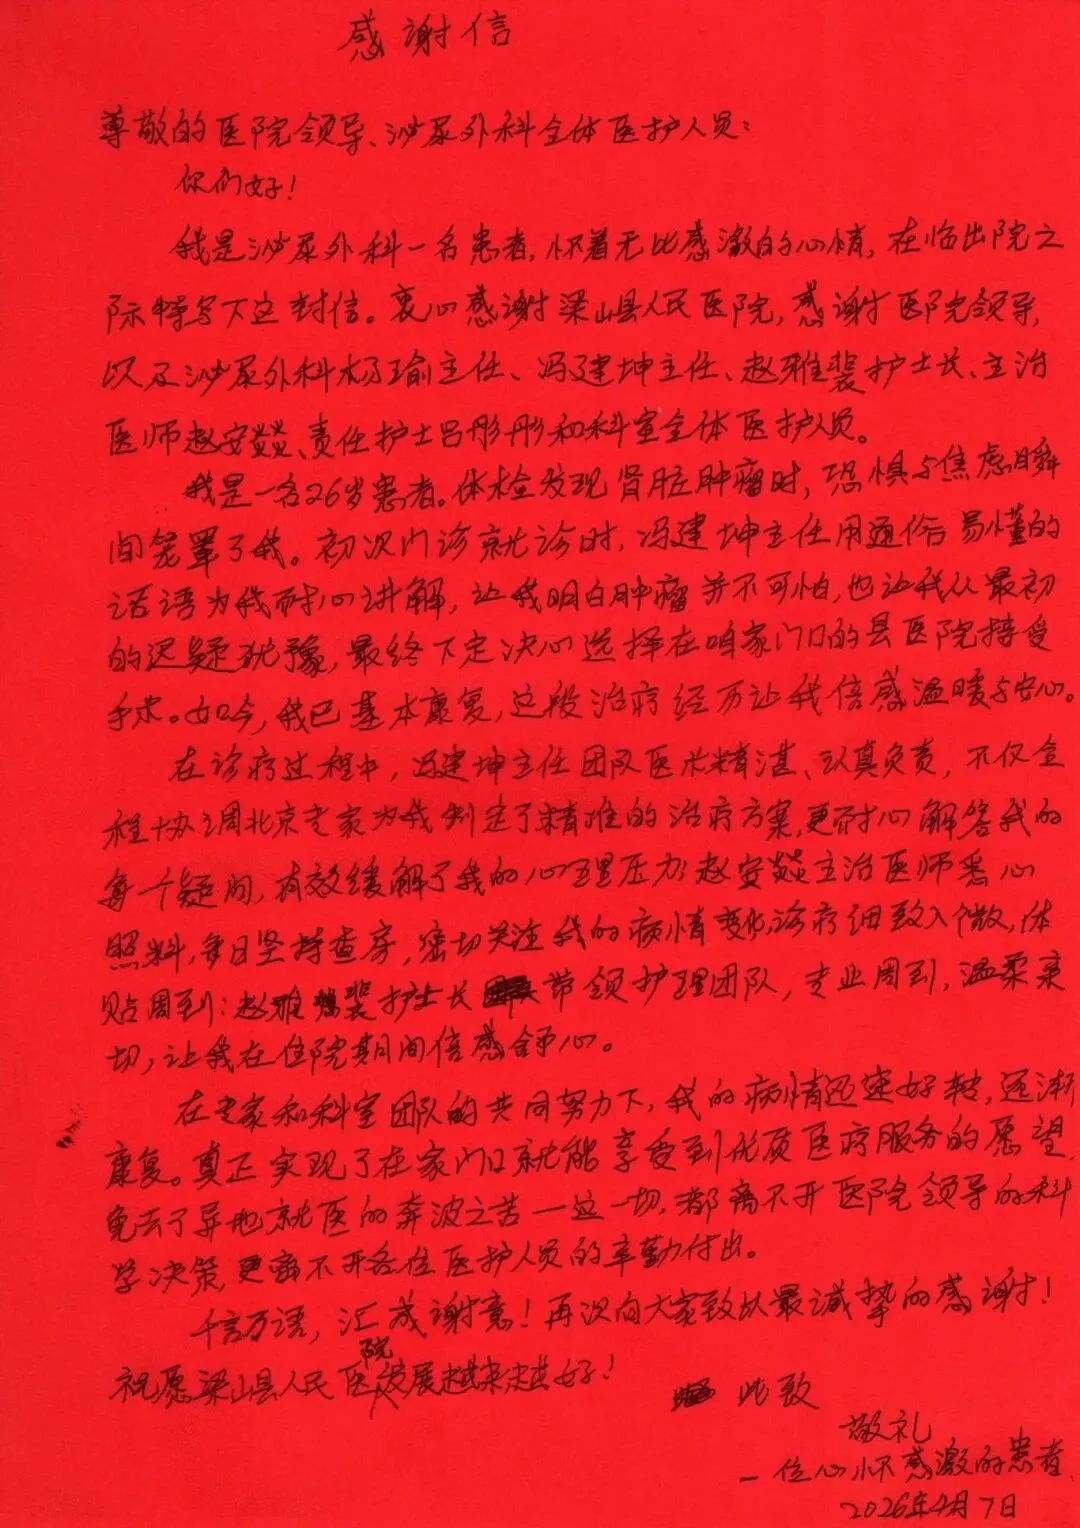 感谢信
尊敬的医院领导、泌尿外科全体医护人员：
你们好！
我是泌尿外科一名患者，怀着无比感激的心情，在临出院之
际特写下这封信。衷心感谢梁山县人民医院，感谢医院领导，
以及泌尿外科杨瑜主任、冯建坤主任、赵雅裴护士长、主治
医师赵安燚、责任护士吕彤彤和科室全体医护人员。
我是一名26岁患者。体检发现肾脏肿瘤时，恐惧与焦虑瞬
间笼罩了我。初次门诊就诊时，冯建坤主任用通俗易懂的
话语为我耐心讲解，让我明白肿瘤并不可怕，也让我从最初
的迟疑犹豫，最终下定决心选择在咱家门口的县医院接受
手术。如今，我已基本康复，这段治疗经历让我倍感温暖与安心。
在诊疗过程中，冯建坤主任团队医术精湛、认真负责，不仅全
程协调北京专家为我制定了精准的治疗方案，更耐心解答我的
每一个疑问，有效缓解了我的心理压力；赵安燚主治医师悉心
照料，每日坚持查房，密切关注我的病情变化，诊疗细致入微，体
贴周到；赵雅裴护士长带领护理团队，专业周到，温柔亲
切，让我在住院期间倍感舒心。
在专家和科室团队的共同努力下，我的病情迅速好转，逐渐
康复。真正实现了在家门口就能享受到优质医疗服务的愿望，
免去了异地就医的奔波之苦一这一切，都离不开医院领导的科
学决策，更离不开各位医护人员的辛勤付出。
千言万语，汇成谢意！再次向大家致以最诚挚的感谢！
祝愿梁山县人民医院发展越来越好！
此致
敬礼
一位心怀感激的患者
2026年4月7日